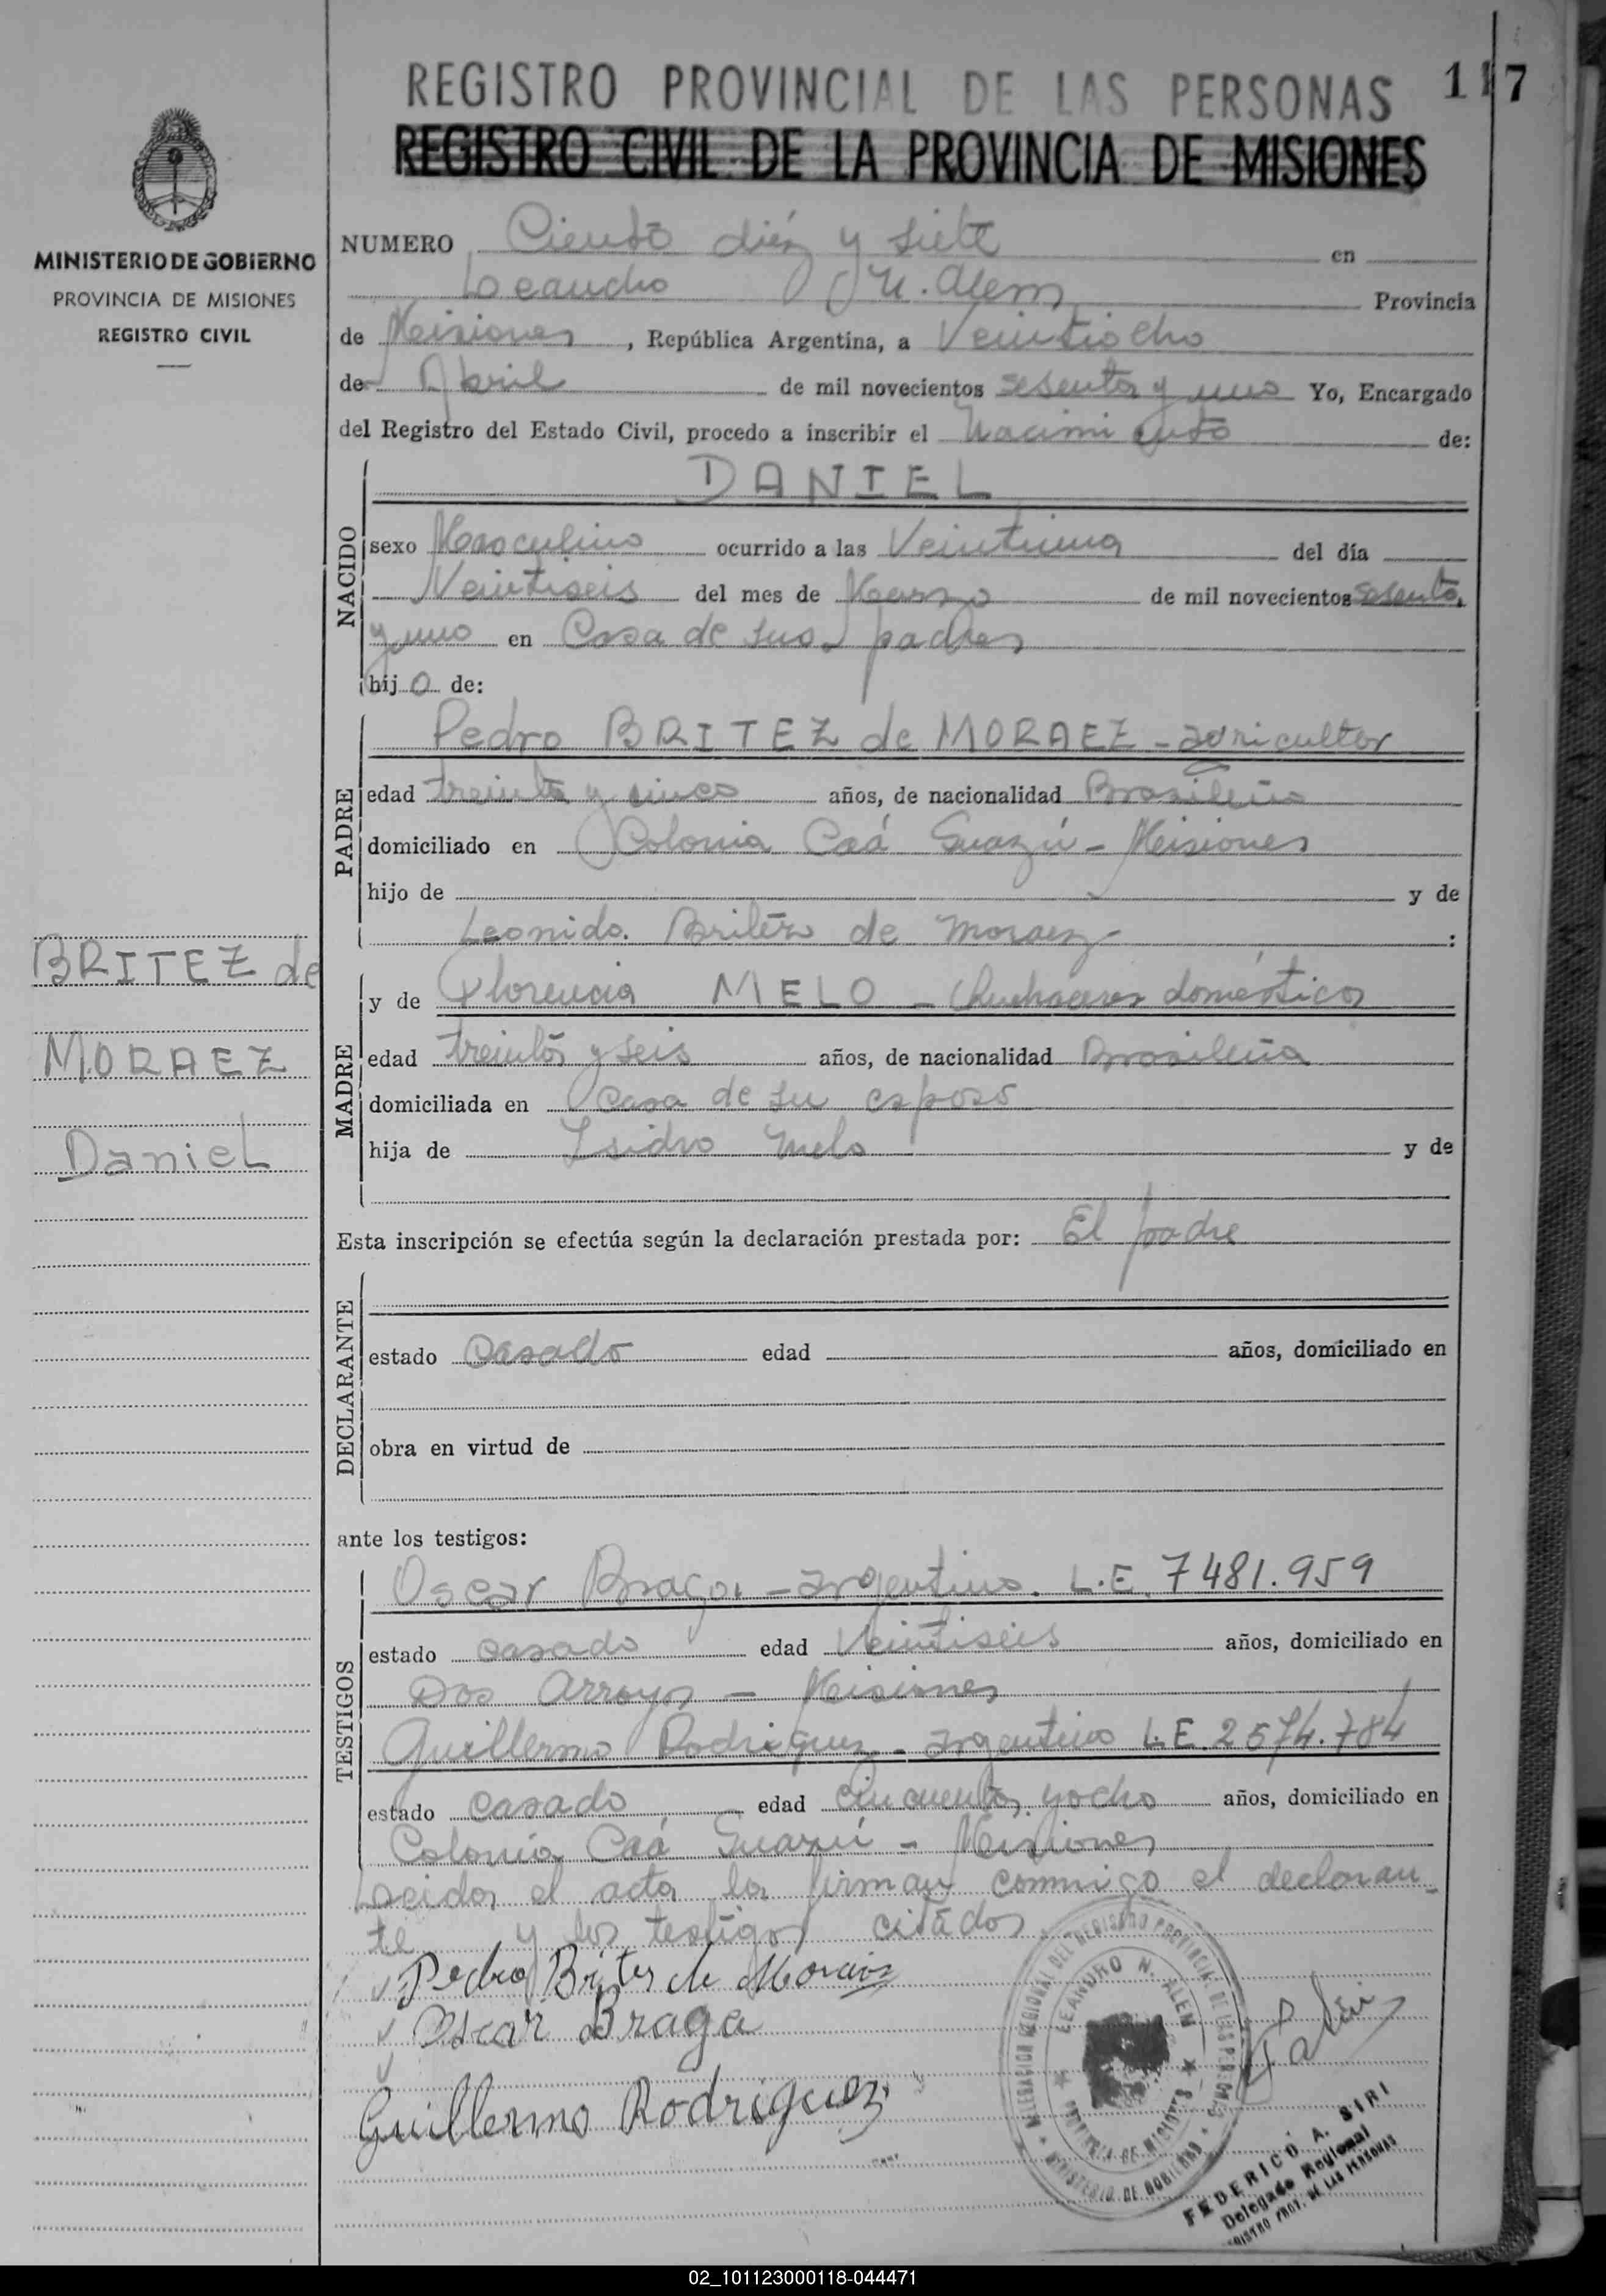 REGISTRO PROVINCIAL DE LAS PERSONAS 117
REGISTRO CIVIL DE LA PROVINCIA DE MISIONES
MINISTERIO DE GOBIERNO
PROVINCIA DE MISIONES
REGISTRO CIVIL
NUMERO Ciento diez y siete en
Leandro N. Alem Provincia
de Misiones, República Argentina, a Veintiocho
de Abril de mil novecientos sesenta y uno Yo, Encargado
del Registro del Estado Civil, procedo a inscribir el Nacimiento de:
NACIDO
DANIEL
sexo Masculino ocurrido a las Veintiuna del día
Veintiseis del mes de Marzo de mil novecientos sesenta
y uno en Casa de sus padres
hijo de:
PADRE
Pedro BRITEZ de MORAEZ - agricultor
edad treinta y cinco años, de nacionalidad Brasileña
domiciliado en Colonia Caá Guazú - Misiones
hijo de y de
Leonida Britez de Moraez :
BRITEZ de
MORAEZ
Daniel
MADRE
y de Florencia MELO - Quehaceres domésticos
edad treinta y seis años, de nacionalidad Brasileña
domiciliada en casa de su esposo
hija de Isidro Melo y de
Esta inscripción se efectúa según la declaración prestada por: El padre
DECLARANTE
estado casado edad años, domiciliado en
obra en virtud de
ante los testigos:
TESTIGOS
Oscar Braga - argentino. L.E. 7481.959
estado casado edad Veintiseis años, domiciliado en
Dos Arroyos - Misiones
Guillermo Rodriguez - argentino L.E. 2574.784
estado casado edad cincuenta y ocho años, domiciliado en
Colonia Caá Guazú - Misiones
Leida el acta la firman conmigo el declaran-
te y los testigos citados
Pedro Brites de Morais
Oscar Braga
Guillermo Rodriguez
DELEGACION REGIONAL DEL REGISTRO PROVINCIAL DE LAS PERSONAS
LEANDRO N. ALEM
PROVINCIA DE MISIONES
MINISTERIO DE GOBIERNO
FEDERICO A. SIRI
Delegado Regional
REGISTRO PROV. DE LAS PERSONAS
02_101123000118-044471